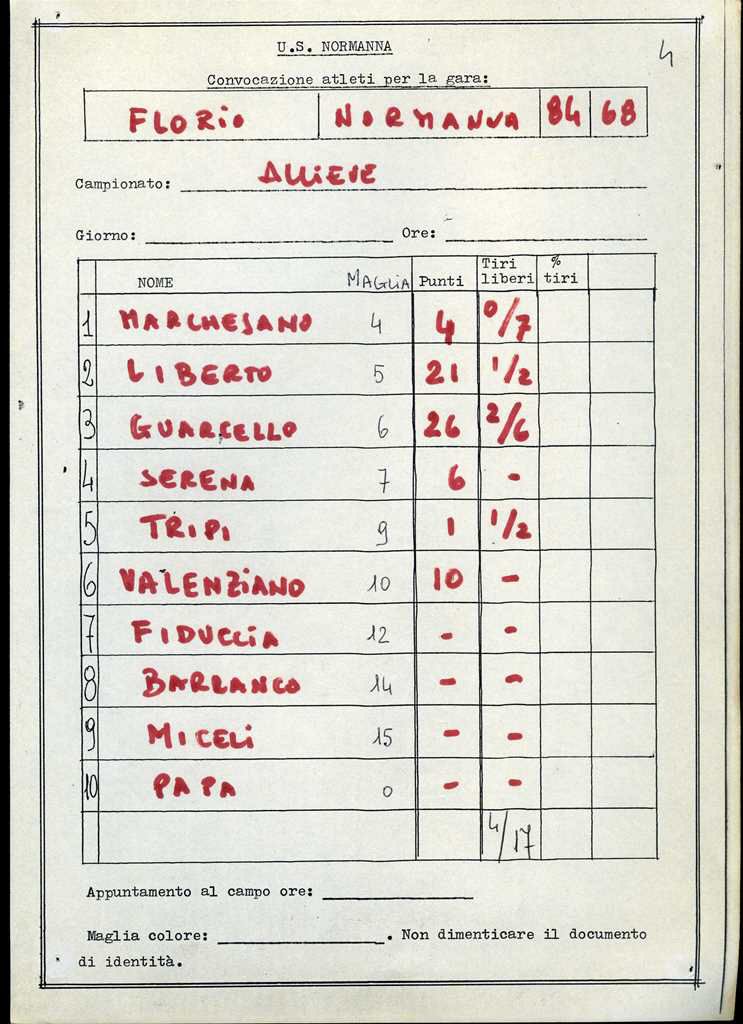 4
U.S. NORMANNA
Convocazione atleti per la gara:
FLORIO NORMANNA 84 68
Campionato: ALLIEVE
Giorno: Ore:
NOME MAGLIA Punti Tiri liberi % tiri
1 MARCHESANO 4 4 0/7
2 LIBERTO 5 21 1/2
3 GUARCELLO 6 26 2/6
4 SERENA 7 6 -
5 TRIPI 9 1 1/2
6 VALENZIANO 10 10 -
7 FIDUCCIA 12 - -
8 BARRANCO 14 - -
9 MICELI 15 - -
10 PAPA 0 - -
4/17
Appuntamento al campo ore:
Maglia colore: . Non dimenticare il documento
di identità.